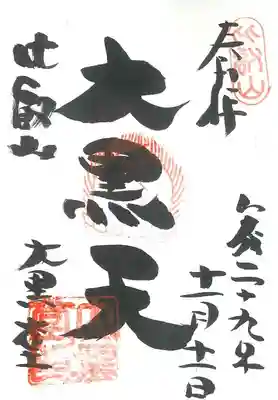 奉拝
平成二十九年
十一月十一日
大黒天
比叡山
大黒堂